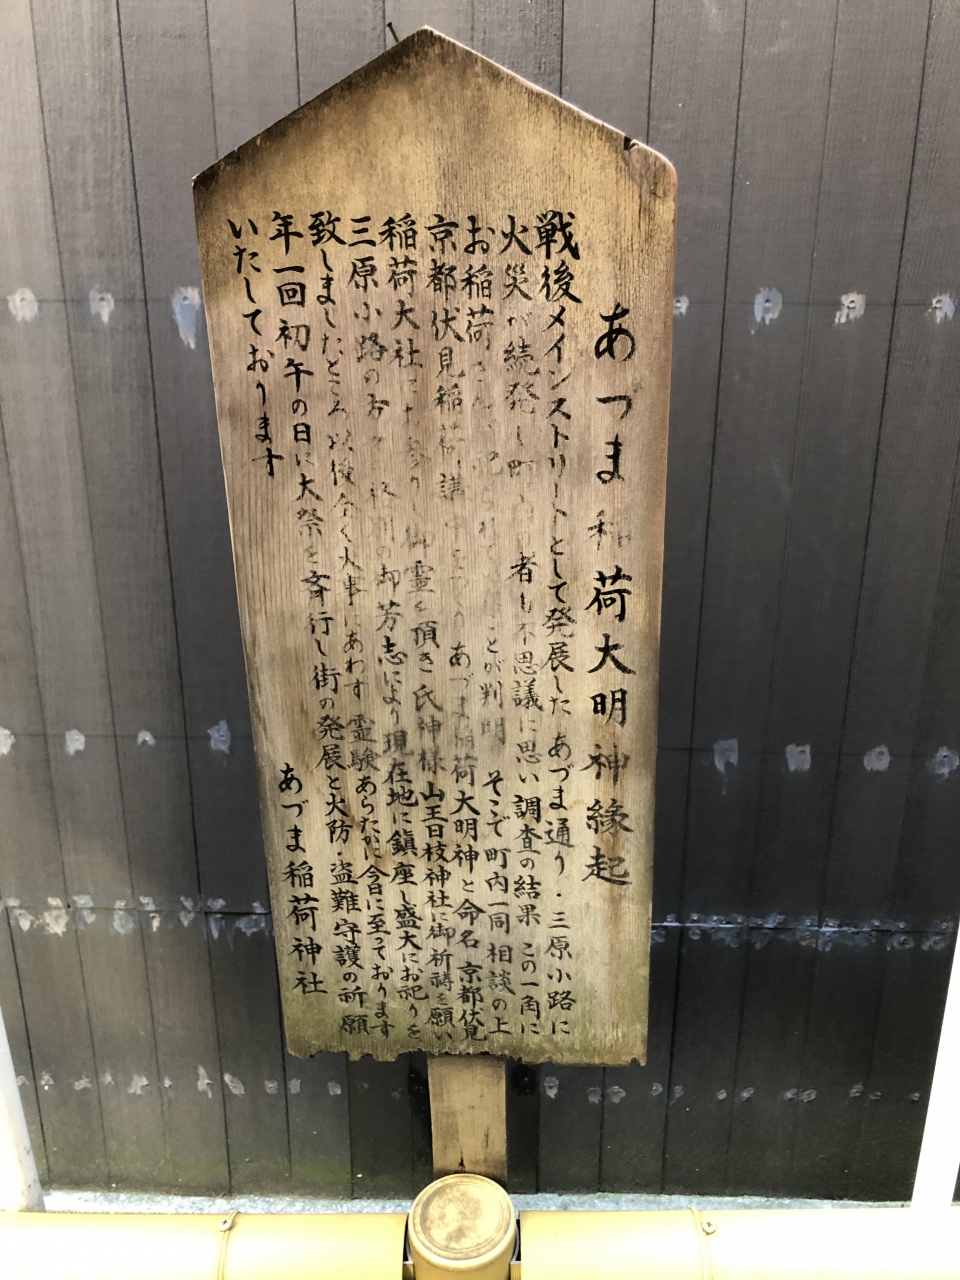 あづま稲荷大明神縁起
戦後メインストリートとして発展した あづま通り・三原小路に
火災が続発し町内 者も不思議に思い調査の結果 この一角に
お稲荷さんが祀られて ことが判明 そこで町内一同相談の上
京都伏見稲荷講 あづま稲荷大明神と命名 京都伏見
稲荷大社に お参りし御霊を頂き氏神様山王日枝神社に御祈祷を願い
三原小路の方々 格別の御芳志により現在地に鎮座し盛大にお祀りを
致しましたところ以後全く火事にあわず 霊験あらたかに今日に至っております
年一回初午の日に大祭を斉行し街の発展と火防・盗難守護の祈願
いたしております
あづま稲荷神社